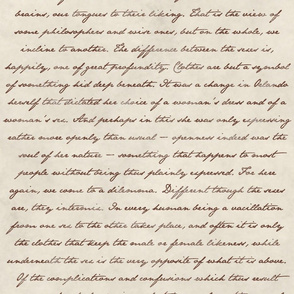 brains, our tongues to their liking. That is the view of
some philosophers and wise ones, but on the whole, we
incline to another. The difference between the sexes is,
happily, one of great profundity. Clothes are but a symbol
of something hid deep beneath. It was a change in Orlando
herself that dictated her choice of a woman's dress and of a
woman's sex. And perhaps in this she was only expressing
rather more openly than usual — openness indeed was the
soul of her nature — something that happens to most
people without being thus plainly expressed. For here
again, we come to a dilemma. Different though the sexes
are, they intermix. In every human being a vacillation
from one sex to the other takes place, and often it is only
the clothes that keep the male or female likeness, while
underneath the sex is the very opposite of what it is above.
Of the complications and confusions which thus result